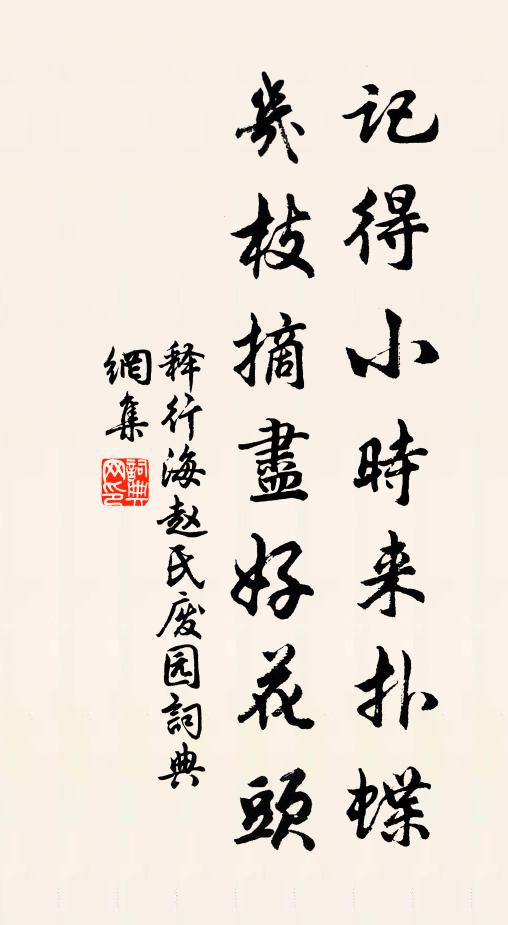 记得小時来扑蝶
幾枝摘盡好花頭
释行海赵氏废园詞典
網集
詞典网印